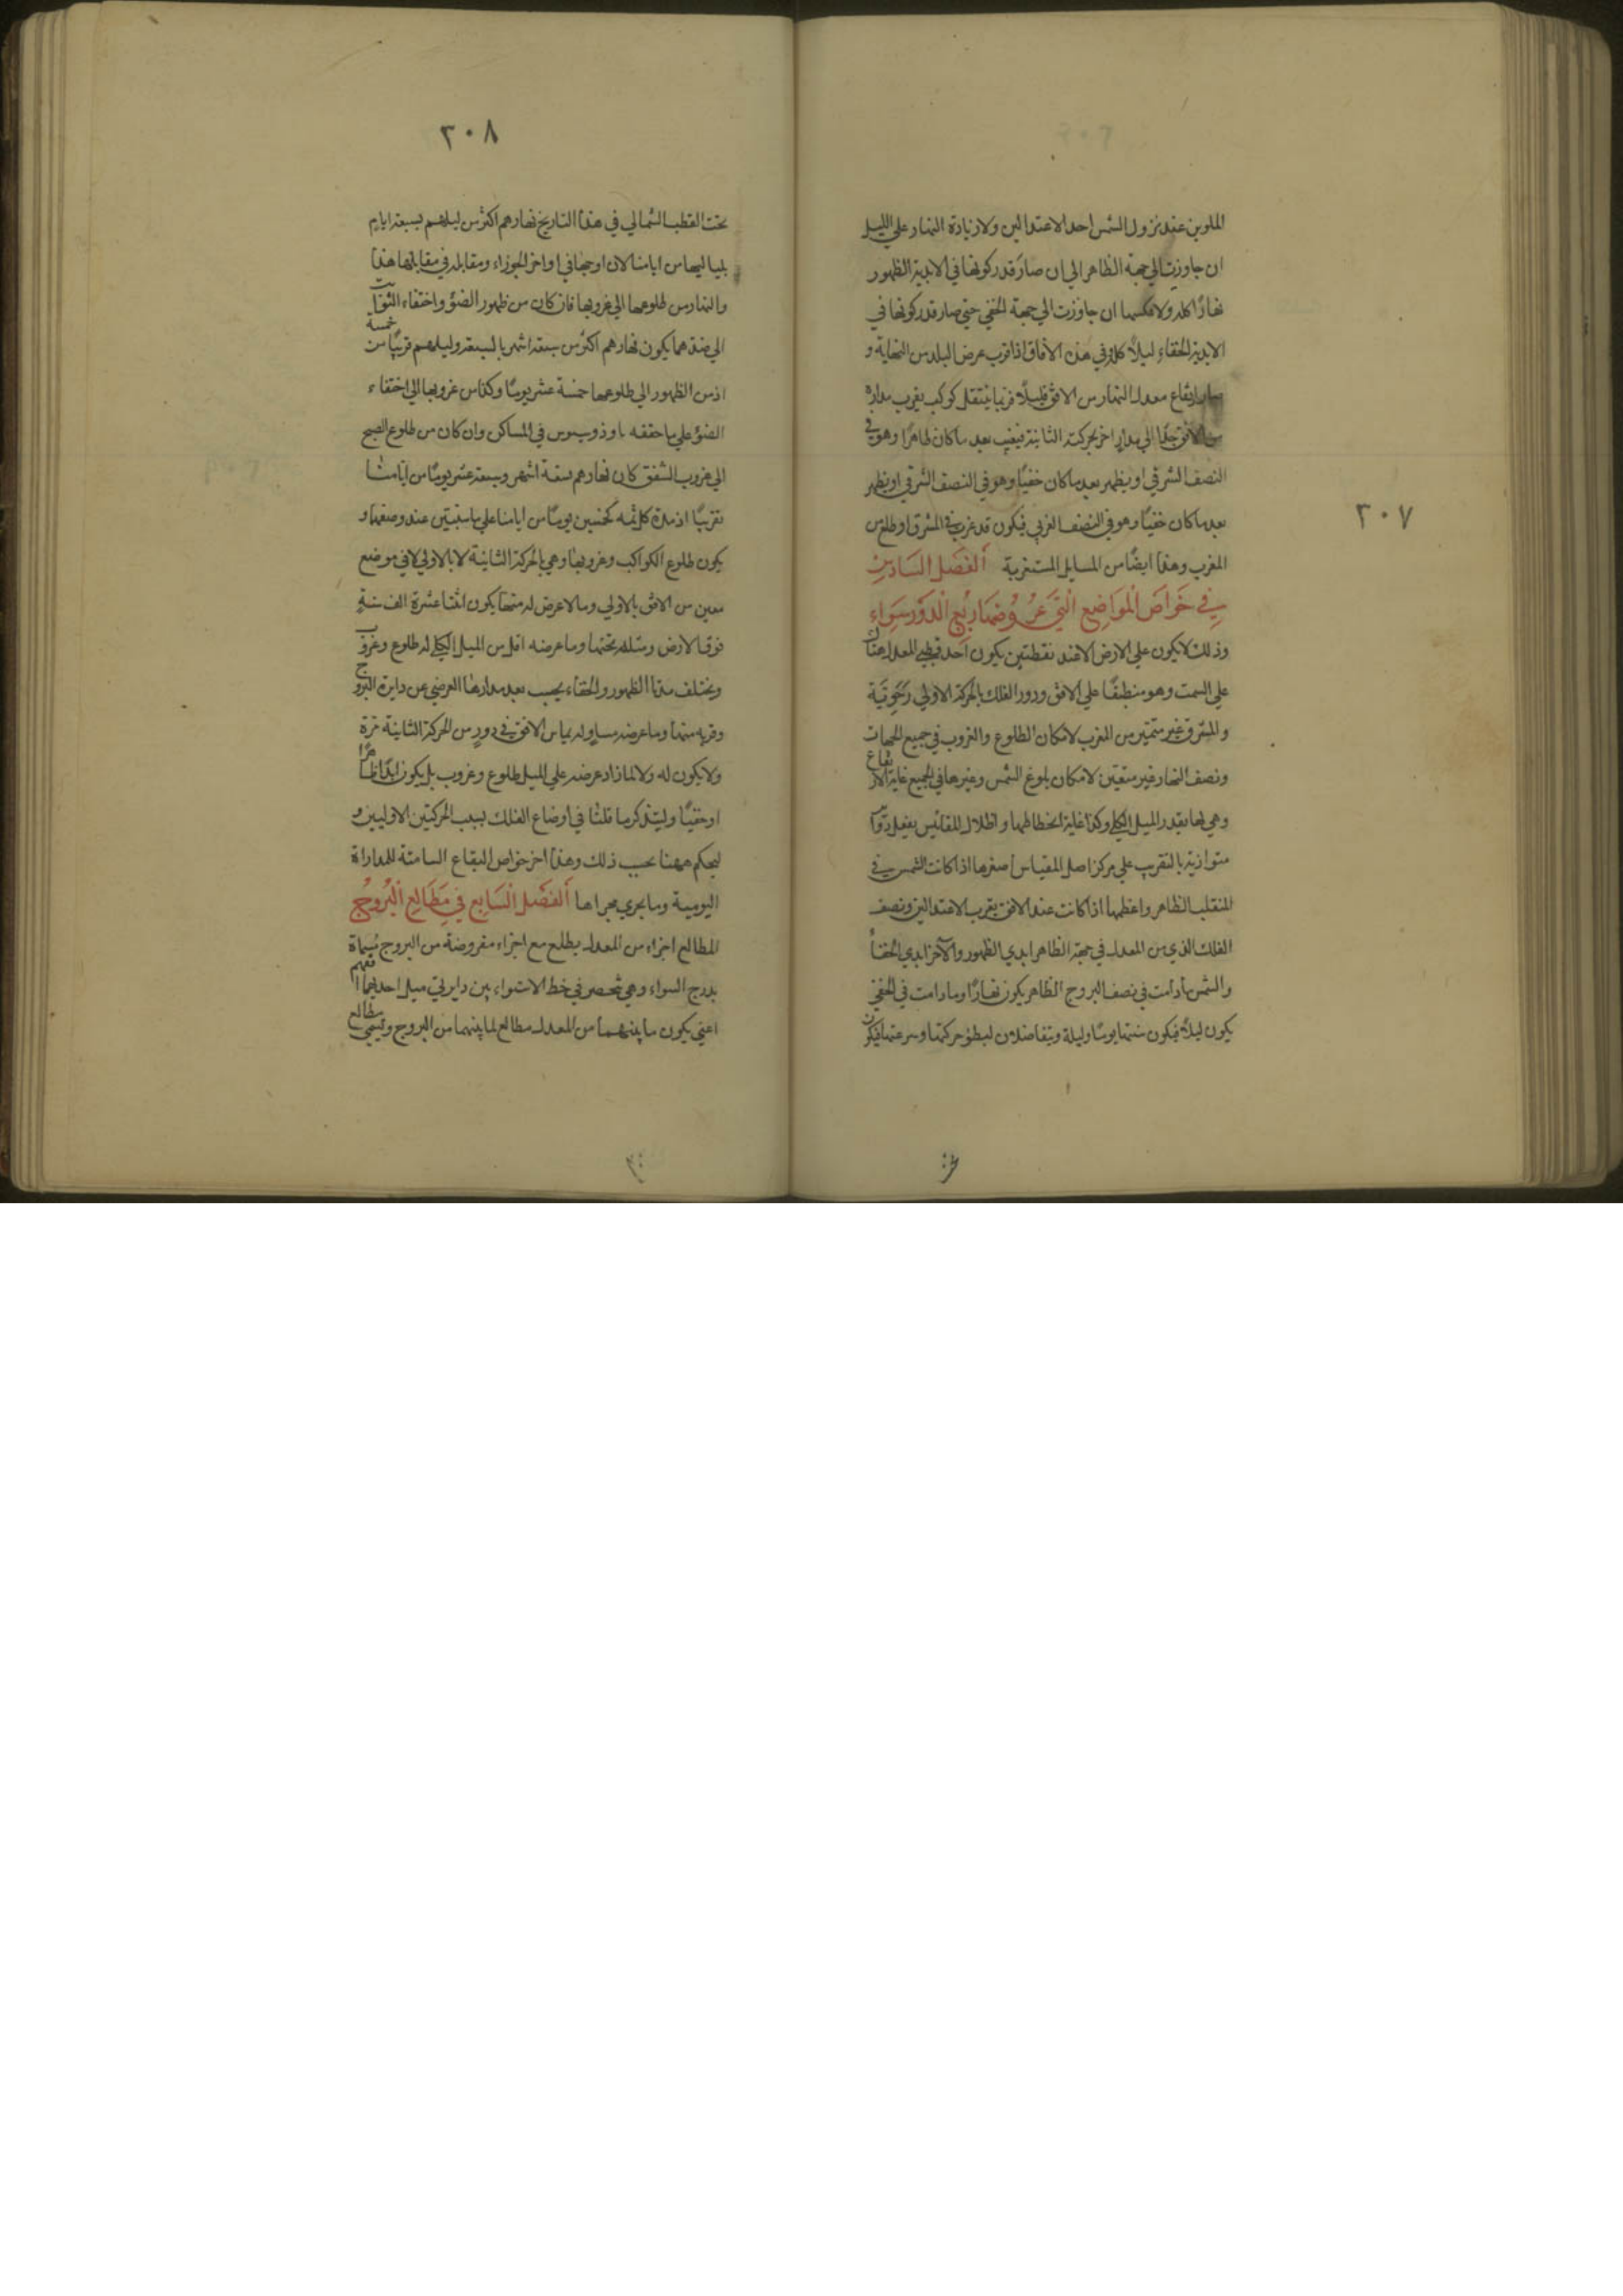 ٣٠٧
الملوين عند نزول الشمس احد الاعتدالين ولا زيادة النهار علي الليل
ان جاوزت الي جهة الظاهر الي ان صار قدر كونها في الابدية الظهور
نهارًا كله ولا عكسها ان جاوزت الي جهة الخفي حتي صار قدر كونها في
الابدية الخفاء ليلًا كله وفي هذه الآفاق اذا قرب عرض البلد من النهاية و
ارتفاع معدل النهار من الافق قليلًا فربما ينتقل كوكب بقرب مداره
من الافق جدًا الي مدار اخر بحركته الثانية فيغيب بعد ما كان ظاهرًا وهو في
النصف الشرقي او يظهر بعد ما كان خفيًا وهو في النصف الشرقي او يظهر
بعد ما كان خفيًا وهو في النصف الغربي فيكون قد غرب في المشرق او طلع من
المغرب وهذا ايضًا من المسايل المستغربة الفصل السادس
في خواص المواضع التي عروضها ربع الدور سواء
وذلك لا يكون علي الارض الا عند نقطتين يكون احد قطبي المعدل هناك
علي السمت وهو منطبقًا علي الافق ودور الفلك بالحركة الاولي رحوية
والمشرق غير متميز من المغرب لامكان الطلوع والغروب في جميع الجهات
ونصف النهار غير متعين لامكان بلوغ الشمس وغيرها في الجميع غاية الارتفاع
وهي لها بقدر الميل الكلي وكذا غاية انحطاطها واظلال المقائيس يفعل دوآير
متوازية بالتقريب علي مركز اصل المقياس اصغرها اذا كانت الشمس في
المنقلب الظاهر واعظمها اذا كانت عند الافق بقرب الاعتدالين ونصف
الفلك الذي من المعدل في جهة الظاهر ابدي الظهور والآخر ابدي الخفآء
والشمس ما دامت في نصف البروج الظاهر يكون نهارًا وما دامت في الخفي
يكون ليلًا فيكون سنتها يومًا وليلة ويتفاضلان لبطؤ حركتها وسرعتها فيكون
٣٠٨
تحت القطب الشمالي في هذا التاريخ نهارهم اكثر من ليلهم بسبعة ايام
بلياليها من ايامنا لان اوجها في اواخر الجوزاء ومقابله في مقابلتها هذا
والنهار من طلوعها الي غروبها فان كان من ظهور الضوؤ واختفاء الثوابت
الي ضدهما يكون نهارهم اكثر من سبعة اشهر بالسبعة وليلهم قريبًا من خمسة
اذ من الظهور الي طلوعها خمسة عشر يومًا وكذا من غروبها الي اختفاء
الضوؤ علي ما حققه ثاوذوسيوس في المساكن وان كان من طلوع الصبح
الي غروب الشفق كان نهارهم تسعة اشهر وسبعة عشر يومًا من ايامنا
تقريبًا اذ مدة كل منه كخمسين يومًا من ايامنا علي ما سنبين عند وصفهما و
يكون طلوع الكواكب وغروبها وهي بالحركة الثانية لا بالاولي لا في موضع
معين من الافق بالاولي وما لا عرض له منها يكون اثنتا عشرة الف سنة
فوق الارض ومثله تحتها وما عرضه اقل من الميل الكلي له طلوع وغروب
ويختلف مدتا الظهور والخفاء بحسب بعد مدارها العرضي عن دايرة البروج
وقربه منها وما عرضه مساوٍ له يماس الافق في دورٍ من الحركة الثانية مرة
ولا يكون له ولا لما زاد عرضه علي الميل طلوع وغروب بل يكون ابدًا ظاهرًا
او خفيًا وليتذكر ما قلنا في اوضاع الفلك بسبب الحركتين الاوليين و
ليحكم ههنا بحسب ذلك وهذا اخر خواص البقاع السامتة للمداراة
اليومية وما يجري مجراها الفصل السابع في مطالع البروج
المطالع اجزاء من المعدل يطلع مع اجزاء مفروضة من البروج مسماة
بدرج السواء وهي تنحصر في خط الاستواء بين دايرتي ميل احديهما
اعني يكون ما بينهما من المعدل مطالع لما بينهما من البروج وتسمي مطالع